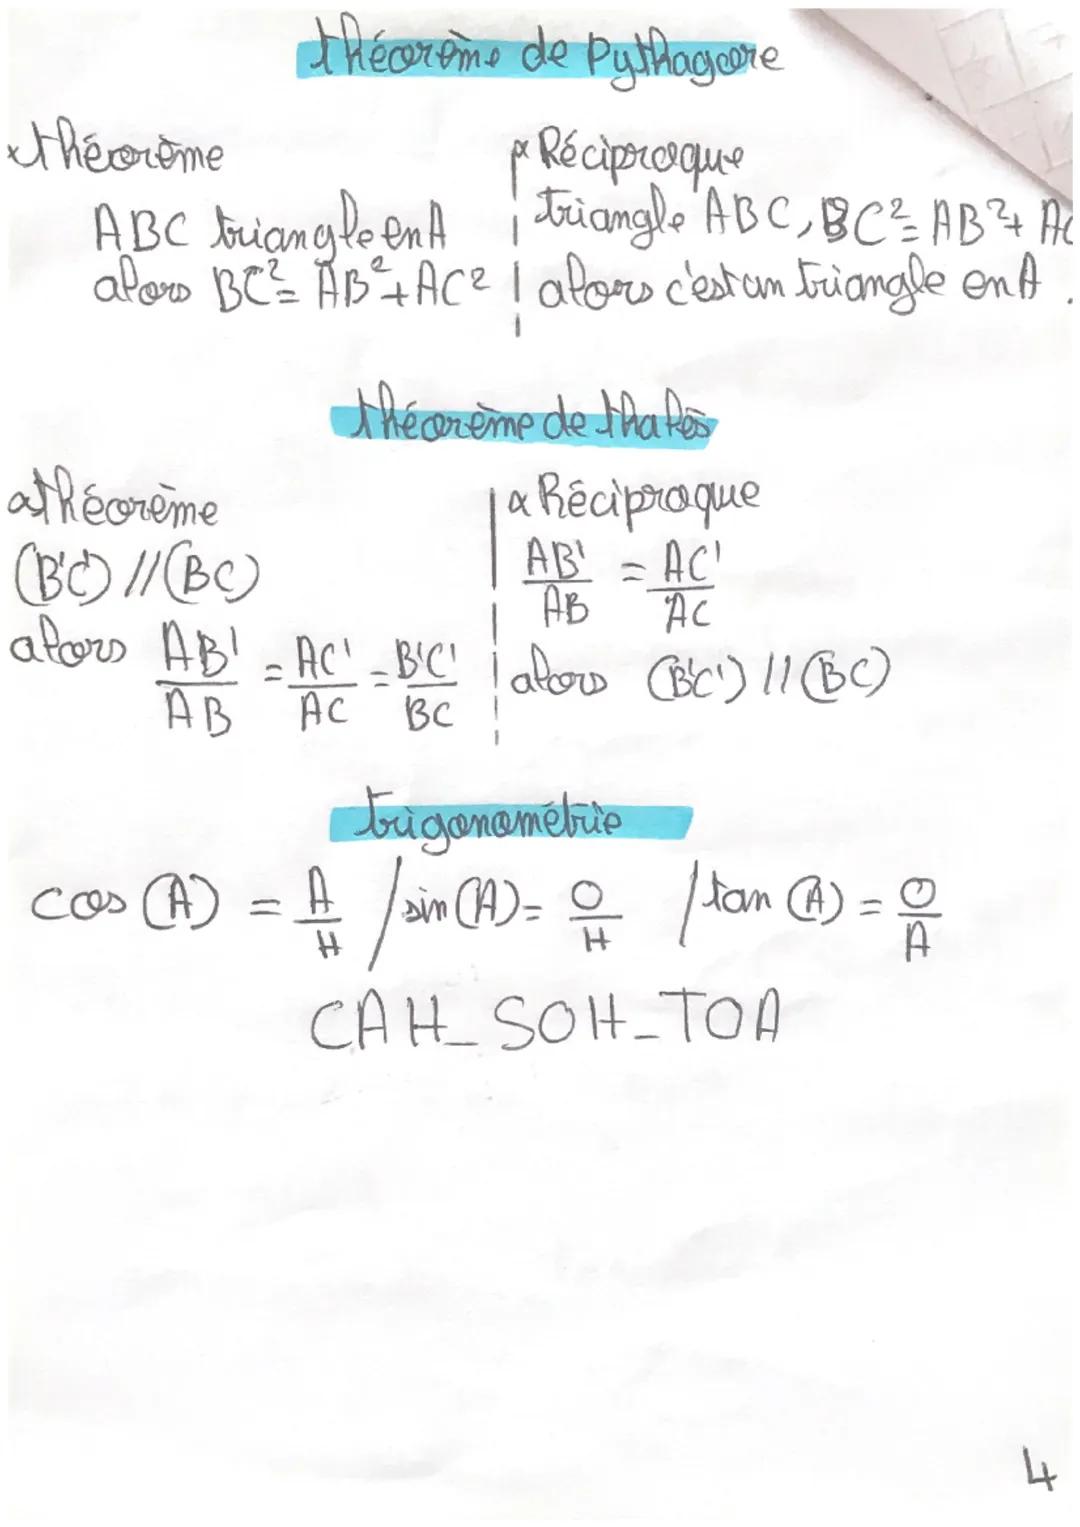 théorème de Pythagore
x théorème
ABC triangle en A
alors BC² = AB² + AC²
x Réciproque
triangle ABC, BC² = AB² + AC
alors c'est un triangle en A.
théorème de thalès
x théorème
(B'C') // (BC)
alors AB'/AB = AC'/AC = B'C'/BC
x Réciproque
AB'/AB = AC'/AC
alors (B'C') // (BC)
trigonométrie
cos (A) = A/H / sin (A) = O/H / tan (A) = O/A
CAH_SOH_TOA
4